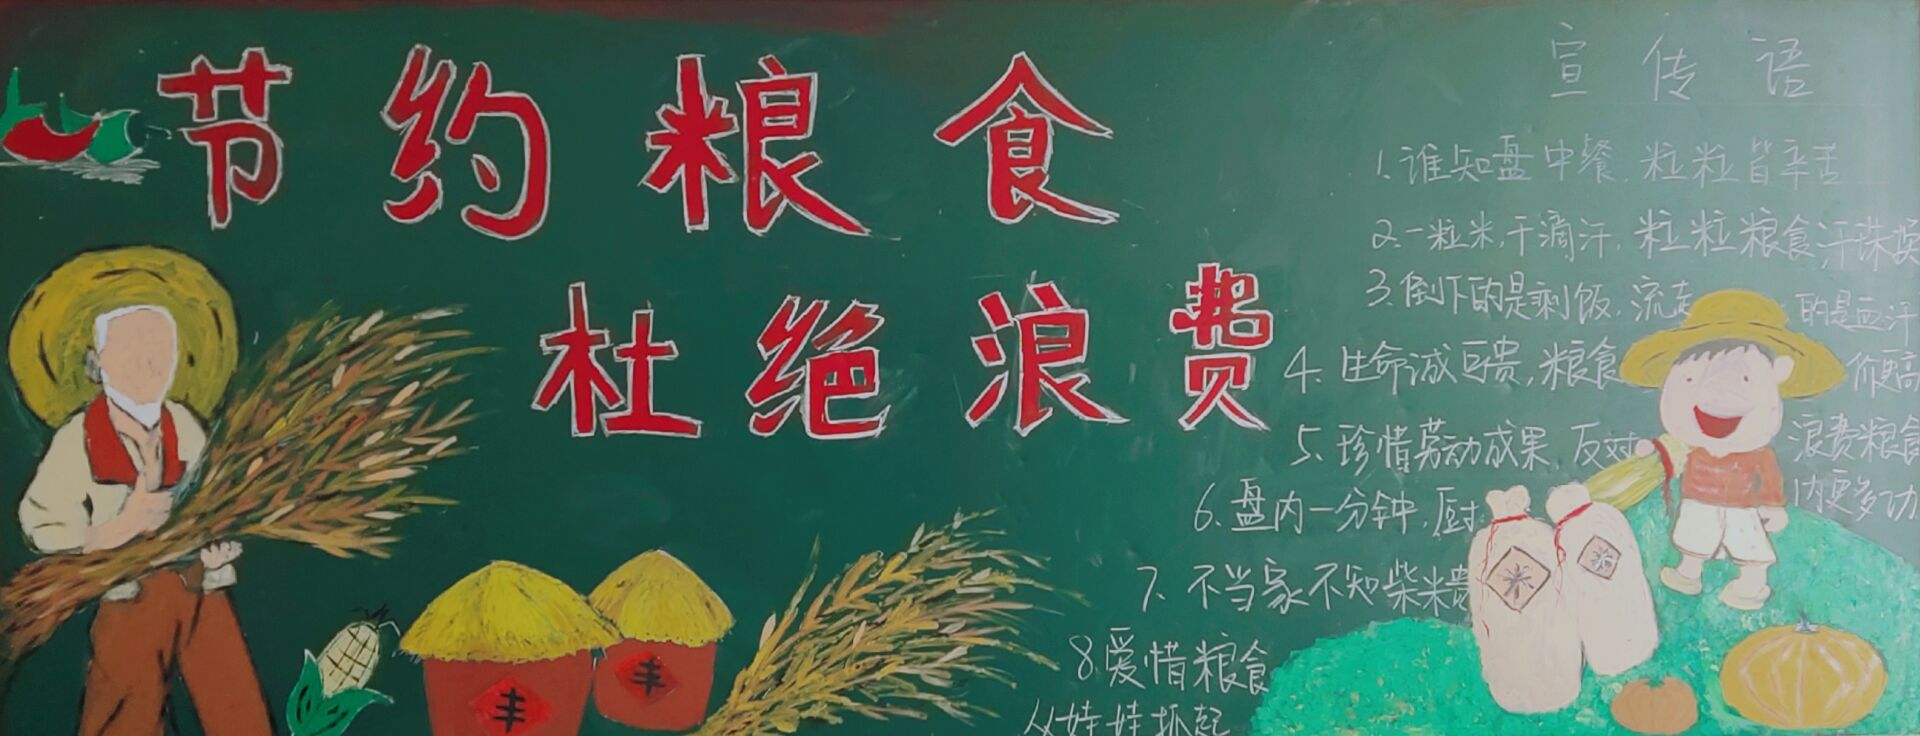 节约粮食
杜绝浪费
宣传语
1.谁知盘中餐,粒粒皆辛苦
2.一粒米,千滴汗,粒粒粮食汗珠换
3.倒下的是剩饭,流走的是血汗
4.生命诚可贵,粮食你更高
5.珍惜劳动成果,反对浪费粮食
6.盘内一分钟,厨内更多功
7.不当家不知柴米贵
8.爱惜粮食
从娃娃抓起
丰
丰